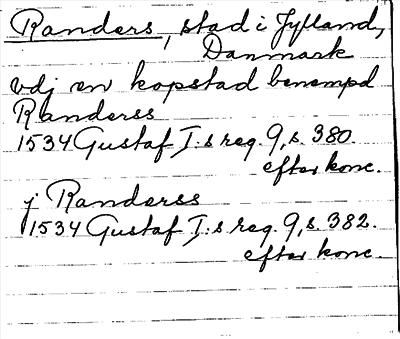 Randers, stad i Jylland,
Danmark
vdj en kopstad benempd
Randerss
1534 Gustaf I:s reg. 9, s. 380.
efter konc.
j Randerss
1534 Gustaf I:s reg. 9, s. 382.
efter konc.